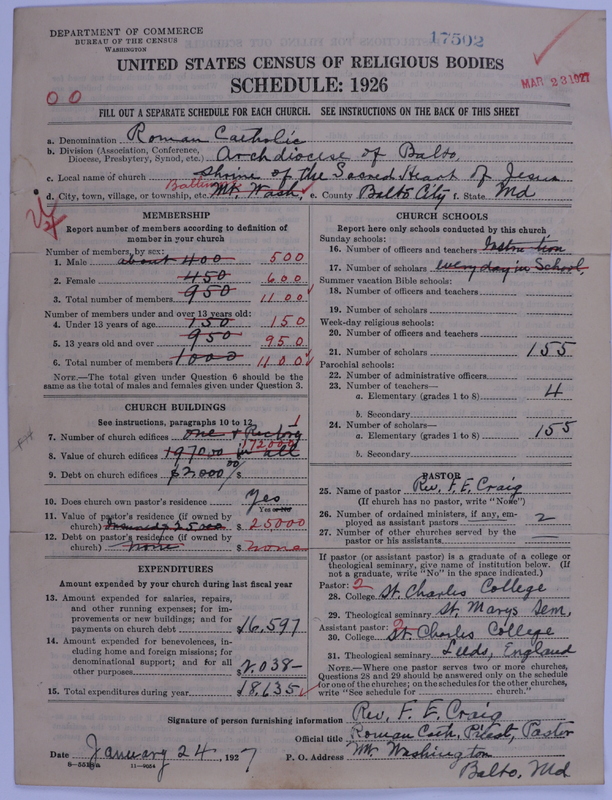 DEPARTMENT OF COMMERCE
BUREAU OF THE CENSUS
WASHINGTON
17502
UNITED STATES CENSUS OF RELIGIOUS BODIES
SCHEDULE: 1926
MAR 23 1927
0 0
FILL OUT A SEPARATE SCHEDULE FOR EACH CHURCH. SEE INSTRUCTIONS ON THE BACK OF THIS SHEET
a. Denomination Roman Catholic
b. Division (Association, Conference, Diocese, Presbytery, Synod, etc.) Archdiocese of Balto.
c. Local name of church Shrine of the Sacred Heart of Jesus
d. City, town, village, or township, etc. Mt. Wash. e. County Balto City f. State Md
MEMBERSHIP
Report number of members according to definition of
member in your church
Number of members, by sex:
1. Male about 400 500
2. Female 450 600
3. Total number of members 950 1100
Number of members under and over 13 years old:
4. Under 13 years of age 150 150
5. 13 years old and over 950 950
6. Total number of members 1000 1100
NOTE.—The total given under Question 6 should be the
same as the total of males and females given under Question 3.
CHURCH BUILDINGS
See instructions, paragraphs 10 to 12
7. Number of church edifices one + Rectory 1
8. Value of church edifices 197000 for all 172000
9. Debt on church edifices $2000 00 $
10. Does church own pastor's residence Yes
Yes or No
11. Value of pastor's residence (if owned by
church) 25000 $ 25000
12. Debt on pastor's residence (if owned by
church) none $ none
EXPENDITURES
Amount expended by your church during last fiscal year
13. Amount expended for salaries, repairs,
and other running expenses; for im-
provements or new buildings; and for
payments on church debt $16,597
14. Amount expended for benevolences, in-
cluding home and foreign missions; for
denominational support; and for all
other purposes $2,038-
15. Total expenditures during year 18,635
CHURCH SCHOOLS
Report here only schools conducted by this church
Sunday schools:
16. Number of officers and teachers Instruction
17. Number of scholars every day in School.
Summer vacation Bible schools:
18. Number of officers and teachers
19. Number of scholars
Week-day religious schools:
20. Number of officers and teachers
21. Number of scholars 155
Parochial schools:
22. Number of administrative officers
23. Number of teachers—
a. Elementary (grades 1 to 8) 4
b. Secondary
24. Number of scholars—
a. Elementary (grades 1 to 8) 155
b. Secondary
PASTOR
25. Name of pastor Rev. F. E. Craig
(If church has no pastor, write "None")
26. Number of ordained ministers, if any, em-
ployed as assistant pastors 2
27. Number of other churches served by the
pastor or his assistants
If pastor (or assistant pastor) is a graduate of a college or
theological seminary, give name of institution below. (If
not a graduate, write "No" in the space indicated.)
Pastor: 2
28. College St. Charles College
29. Theological seminary St. Marys Sem.
Assistant pastor: 2
30. College St. Charles College
31. Theological seminary Leeds, England
NOTE.—Where one pastor serves two or more churches,
Questions 28 and 29 should be answered only on the schedule
for one of the churches; on the schedules for the other churches,
write "See schedule for church."
Signature of person furnishing information Rev. F. E. Craig
Official title Roman Cath. Priest, Pastor
Date January 24, 1927 P. O. Address Mt Washington
Balto, Md
11—9054